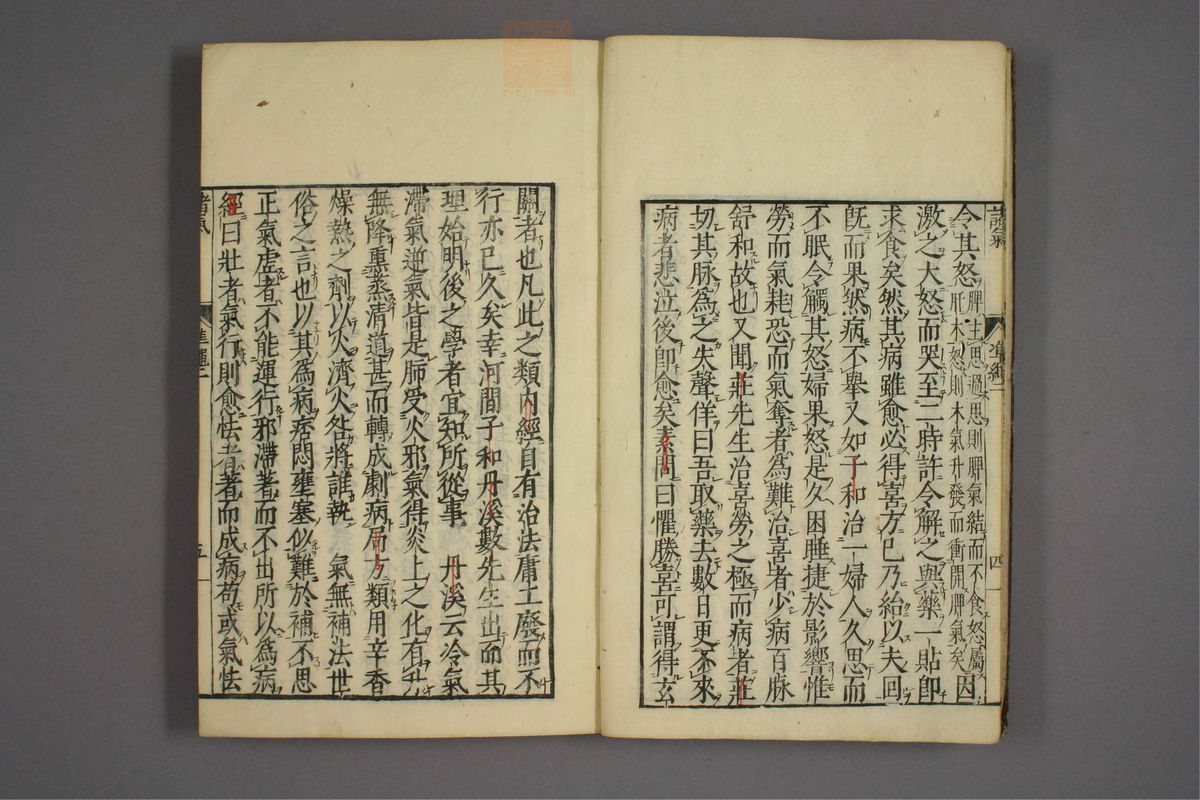 諸氣 準繩二 四
令其怒脾主思過思則脾氣結而不食怒屬肝木怒則木氣升發而衝開脾氣矣因
激之大怒而哭至二時許令解之與藥一貼即
求食矣然其病雖愈必得喜方已乃紿以夫回
既而果然病不舉又如子和治一婦人久思而
不眠令觸其怒婦果怒是久困睡捷於影響惟
勞而氣耗恐而氣奪者爲難治喜者少病百脉
舒和故也又聞莊先生治喜勞之極而病者莊
切其脉爲之失聲佯曰吾取藥去數日更不來
病者悲泣後即愈矣素問曰懼勝喜可謂得玄
關者也凡此之類内經自有治法庸工廢而不
行亦已久矣幸河間子和丹溪數先生出而其
理始明後之學者宜知所從事 丹溪云冷氣
滯氣逆氣皆是肺受火邪氣得炎上之化有升
無降熏蒸清道甚而轉成劇病局方類用辛香
燥熱之劑以火濟火咎將誰執 氣無補法世
俗之言也以其爲病痞悶壅塞似難於補不思
正氣虛者不能運行邪滯著而不出所以爲病
經曰壯者氣行則愈怯者著而成病苟或氣怯
諸氣 準繩二 五